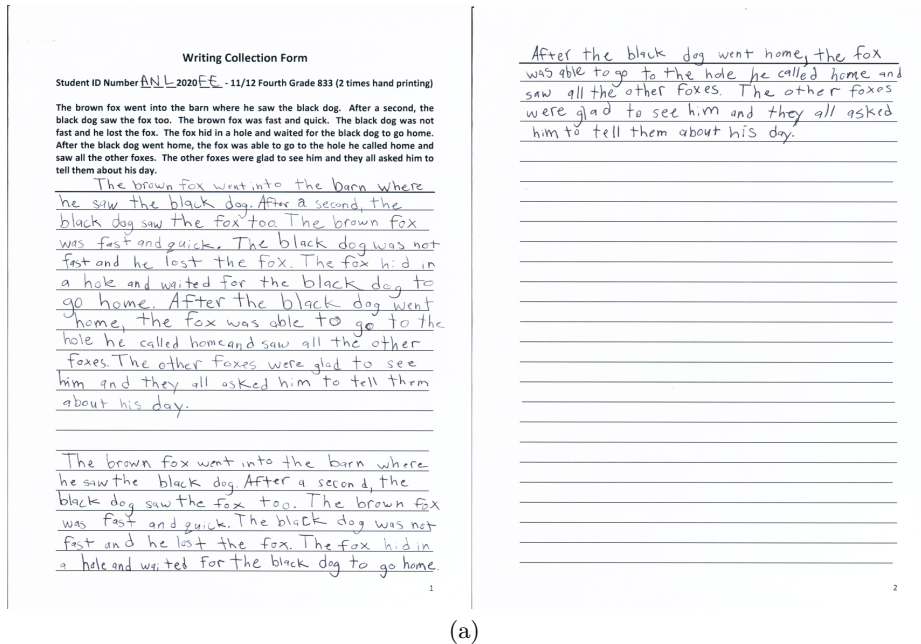 Writing Collection Form
Student ID Number ANL 2020 EE - 11/12 Fourth Grade 833 (2 times hand printing)
The brown fox went into the barn where he saw the black dog. After a second, the
black dog saw the fox too. The brown fox was fast and quick. The black dog was not
fast and he lost the fox. The fox hid in a hole and waited for the black dog to go home.
After the black dog went home, the fox was able to go to the hole he called home and
saw all the other foxes. The other foxes were glad to see him and they all asked him to
tell them about his day.
The brown fox went into the barn where
he saw the black dog. After a second, the
black dog saw the fox too. The brown fox
was fast and quick. The black dog was not
fast and he lost the fox. The fox hid in
a hole and waited for the black dog to
go home. After the black dog went
home, the fox was able to go to the
hole he called home and saw all the other
foxes. The other foxes were glad to see
him and they all asked him to tell them
about his day.
The brown fox went into the barn where
he saw the black dog. After a second, the
black dog saw the fox too. The brown fox
was fast and quick. The black dog was not
fast and he lost the fox. The fox hid in
a hole and waited for the black dog to go home.
1
After the black dog went home, the fox
was able to go to the hole he called home and
saw all the other foxes. The other foxes
were glad to see him and they all asked
him to tell them about his day.
2
(a)